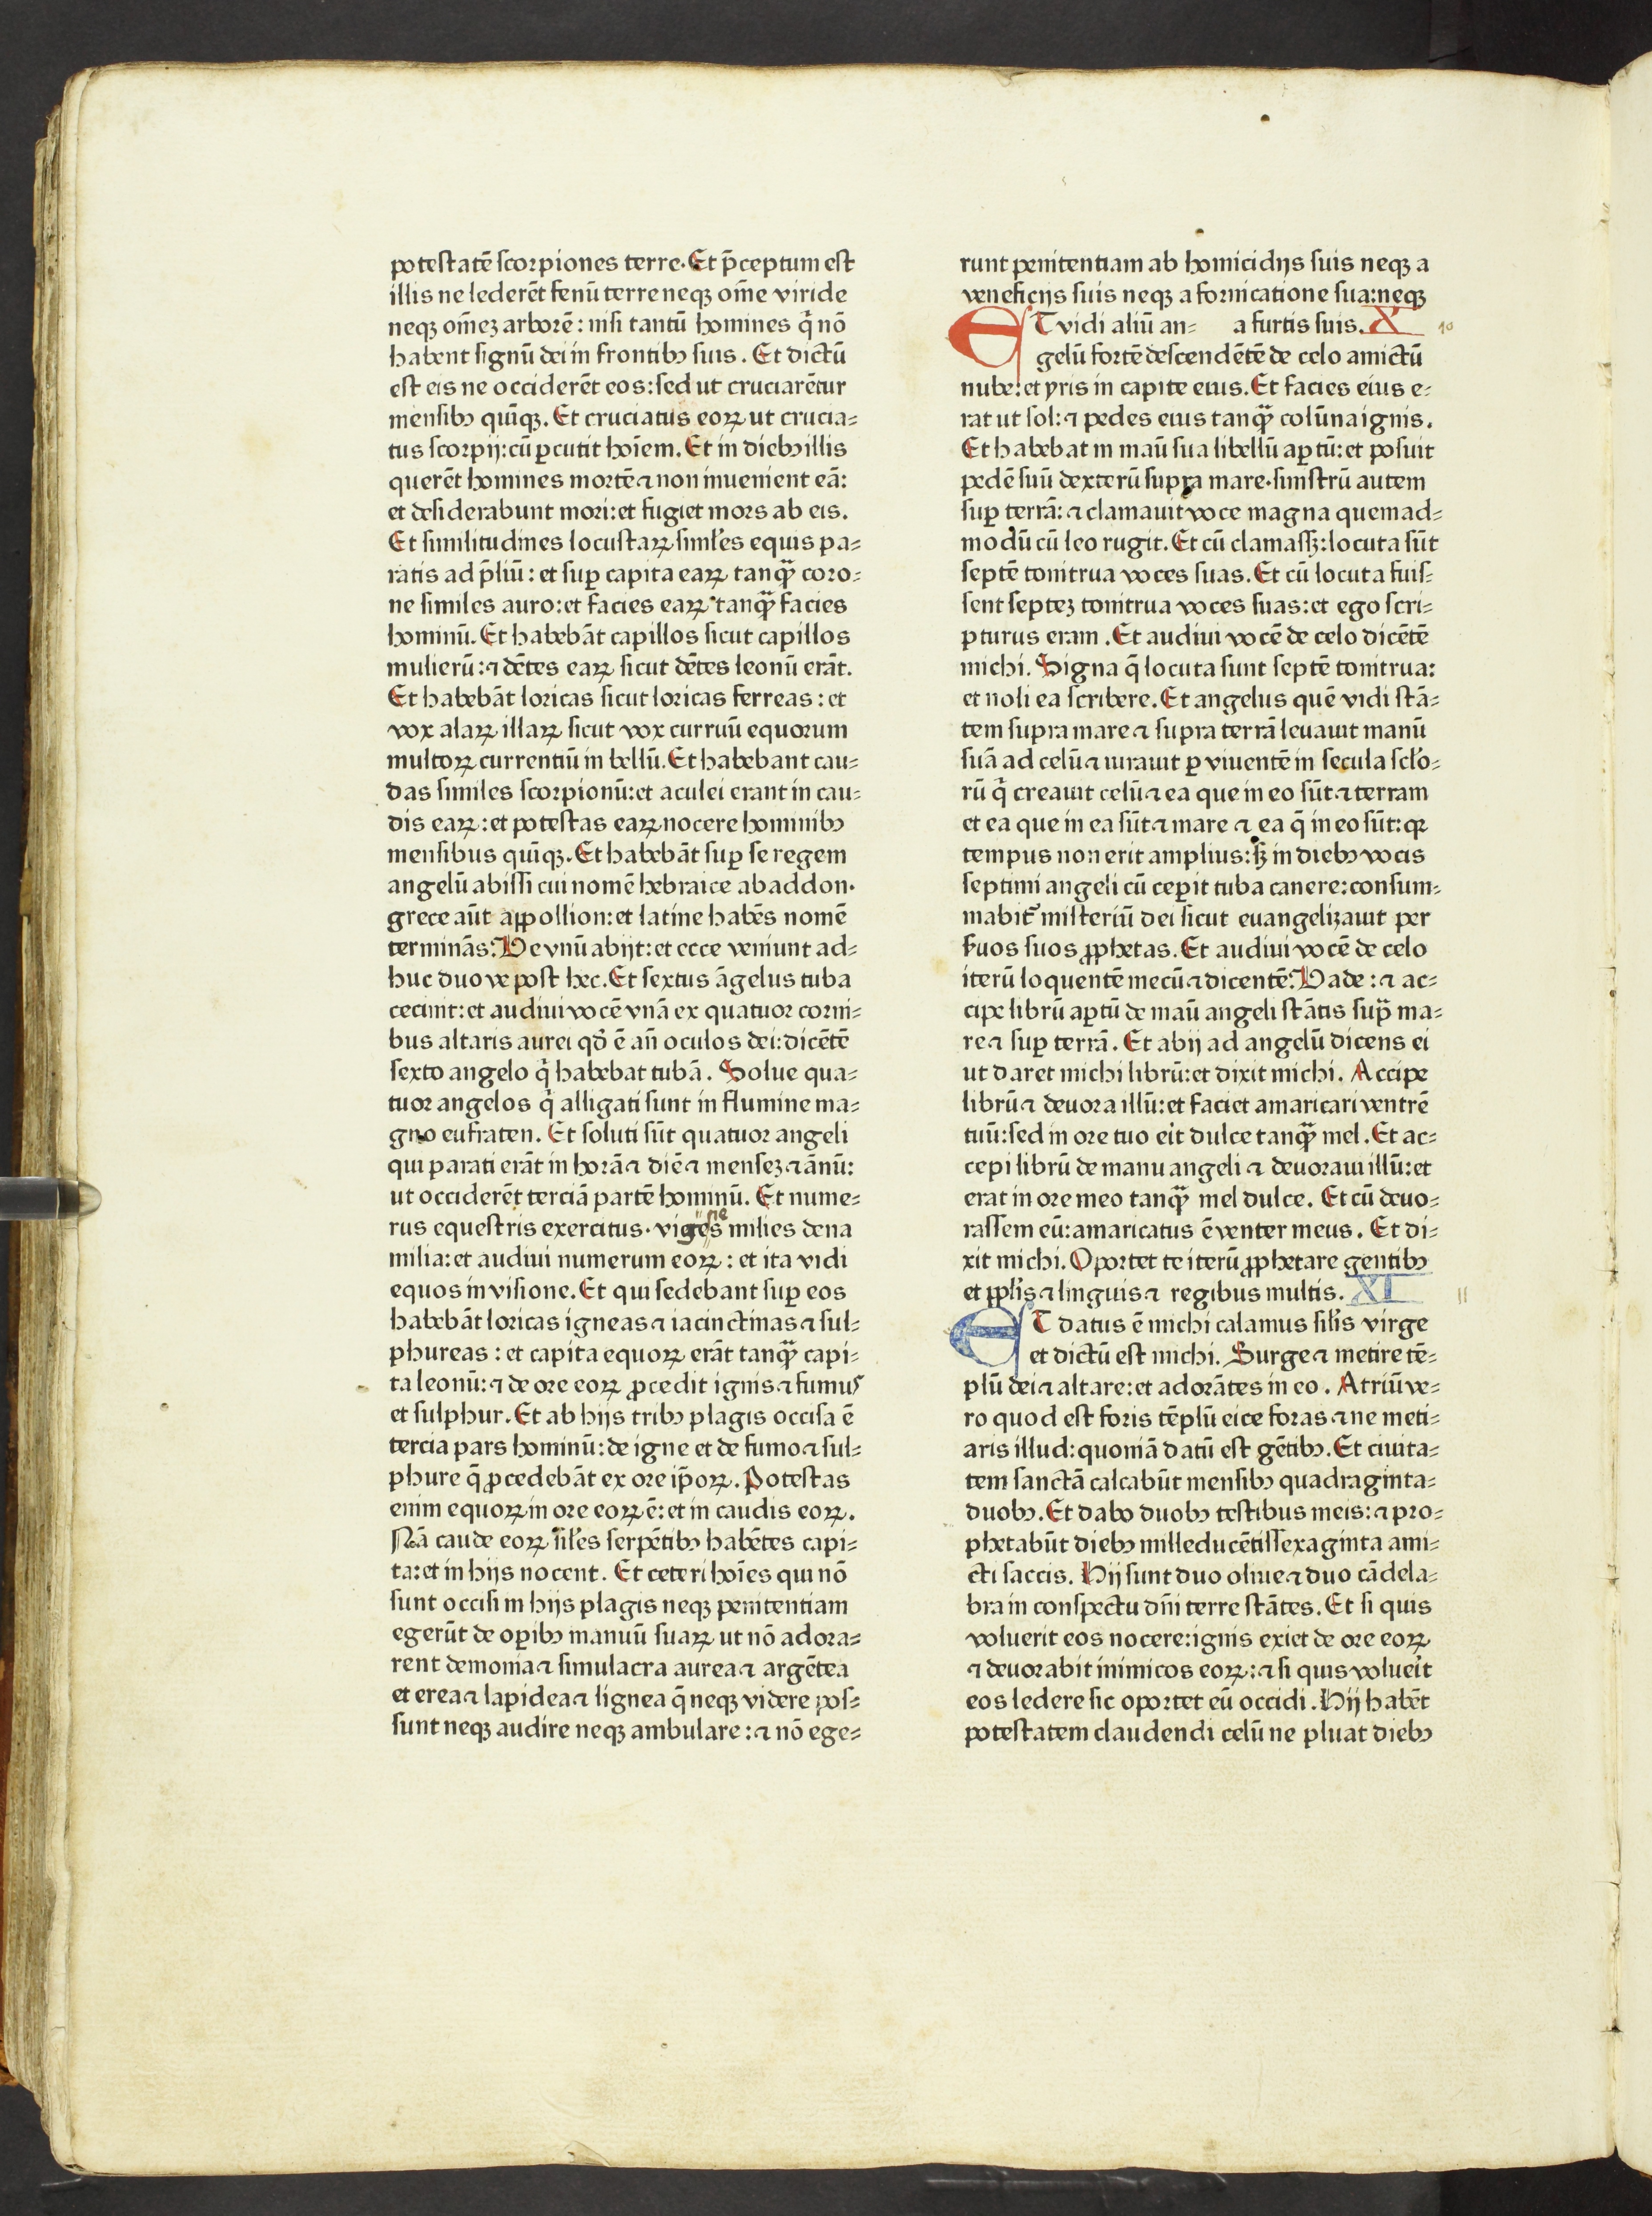 potestatē scorpiones terre. Et p̄ceptum est
illis ne lederēt fenū terre neqꝫ om̄e viride
neqꝫ om̄eꝫ arborē: nisi tantū homines q̄ nō
habent signū dei in frontibꝰ suis. Et dictū
est eis ne occiderēt eos: sed ut cruciarētur
mensibꝰ quīqꝫ. Et cruciatus eoꝝ ut crucia⸗
tus scorpij: cū ꝑcutit hoīem. Et in diebꝰ illis
querēt homines mortē ⁊ non inuenient eā:
et desiderabunt mori: et fugiet mors ab eis.
Et similitudines locustaꝝ simłes equis pa⸗
ratis ad p̄liū: et suꝑ capita eaꝝ tanqᷓꝫ coro⸗
ne similes auro: et facies eaꝝ tanqᷓꝫ facies
hominū. Et habebāt capillos sicut capillos
mulierū: ⁊ dētes eaꝝ sicut dētes leonū erāt.
Et habebāt loricas sicut loricas ferreas: et
vox alaꝝ illaꝝ sicut vox curruū equorum
multoꝝ currentiū in bellū. Et habebant cau⸗
das similes scorpionū: et aculei erant in cau⸗
dis eaꝝ: et potestas eaꝝ nocere hominibꝰ
mensibus quīqꝫ. Et habebāt suꝑ se regem
angelū abissi cui nomē hebraice abaddon.
grece aūt appollion: et latine habēs nomē
terminās. Ve vnū abijt: et ecce veniunt ad⸗
huc duo ve post hec. Et sextus āgelus tuba
cecinit: et audiui vocē vnā ex quatuor corni⸗
bus altaris aurei qd̓ ē an̄ oculos dei: dicētē
sexto angelo q̇ habebat tubā. Solue qua⸗
tuor angelos q̇ alligati sunt in flumine ma⸗
gno eufraten. Et soluti sūt quatuor angeli
qui parati erāt in horā ⁊ diē ⁊ menseꝫ ⁊ ānū:
ut occiderēt terciā partē hominū. Et nume⸗
rus equestris exercitus. viges milies dena
milia: et audiui numerum eoꝝ: et ita vidi
equos in visione. Et qui sedebant suꝑ eos
habebāt loricas igneas ⁊ iacinctinas ⁊ sul⸗
phureas: et capita equoꝝ erāt tanqᷓꝫ capi⸗
ta leonū: ⁊ de ore eoꝝ ꝓcedit ignis ⁊ fumus
et sulphur. Et ab hijs tribꝰ plagis occisa ē
tercia pars hominū: de igne et de fumo ⁊ sul⸗
phure q̄ ꝓcedebāt ex ore ip̄oꝝ. Potestas
enim equoꝝ in ore eoꝝ ē: et in caudis eoꝝ.
Nā caude eoꝝ siłes serpētibꝰ habētes capi⸗
ta: et in hijs nocent. Et ceteri hoīes qui nō
sunt occisi in hijs plagis neqꝫ penitentiam
egerūt de oꝑibꝰ manuū suaꝝ ut nō adora⸗
rent demonia ⁊ simulacra aurea ⁊ argētea
et erea ⁊ lapidea ⁊ lignea q̄ neqꝫ videre pos⸗
sunt neqꝫ audire neqꝫ ambulare: ⁊ nō ege⸗
runt penitentiam ab homicidijs suis neqꝫ a
veneficijs suis neqꝫ a fornicatione sua: neqꝫ
ET vidi aliū an⸗ a furtis suis. X 10
gelū fortē descendētē de celo amictū
nube: et yris in capite eius. Et facies eius e⸗
rat ut sol: ⁊ pedes eius tanqᷓꝫ colūna ignis.
Et habebat in manū sua libellū aꝑtū: et posuit
pedē suū dexterū supra mare. sinistrū autem
suꝑ terrā: ⁊ clamauit voce magna quemad⸗
modū cū leo rugit. Et cū clamassꝫ: locuta sūt
septē tonitrua voces suas. Et cū locuta fuis⸗
sent septeꝫ tonitrua voces suas: et ego scri⸗
pturus eram. Et audiui vocē de celo dicētē
michi. Signa q̄ locuta sunt septē tonitrua:
et noli ea scribere. Et angelus quē vidi stā⸗
tem supra mare ⁊ supra terrā leuauit manū
suā ad celū ⁊ iurauit ꝑ viuentē in secula scło⸗
rū q̇ creauit celū ⁊ ea que in eo sūt ⁊ terram
et ea que in ea sūt ⁊ mare ⁊ ea q̄ in eo sūt: qꝛ
tempus non erit amplius: sꝫ in diebꝰ vocis
septimi angeli cū ceꝑit tuba canere: consum⸗
mabit᷑ misteriū dei sicut euangelizauit per
ẜuos suos ꝓphetas. Et audiui vocē de celo
iterū loquentē mecū ⁊ dicentē. Vade: ⁊ ac⸗
cipe librū aꝑtū de manū angeli stātis supᷓ ma⸗
re ⁊ suꝑ terrā. Et abij ad angelū dicens ei
ut daret michi librū: et dixit michi. Accipe
librū ⁊ deuora illū: et faciet amaricari ventrē
tuū: sed in ore tuo eit̓ dulce tanqᷓꝫ mel. Et ac⸗
cepi librū de manu angeli ⁊ deuoraui illū: et
erat in ore meo tanqᷓꝫ mel dulce. Et cū deuo⸗
rassem eū: amaricatus ē venter meus. Et di⸗
xit michi. Oportet te iterū ꝓphetare gentibꝰ
et ppłis ⁊ linguis ⁊ regibus multis. XI 11
ET datus ē michi calamus siłis virge
et dictū est michi. Surge ⁊ metire tē⸗
plū dei ⁊ altare: et adorātes in eo. Atriū ve⸗
ro quod est foris tēplū eice foras ⁊ ne meti⸗
aris illud: quoniā datū est gētibꝰ. Et ciuita⸗
tem sanctā calcabūt mensibꝰ quadraginta⸗
duobꝰ. Et dabo duobꝰ testibus meis: ⁊ pro⸗
phetabūt diebꝰ milleducētissexaginta ami⸗
cti saccis. Hij sunt duo oliue ⁊ duo cādela⸗
bra in conspectu dn̄i terre stātes. Et si quis
voluerit eos nocere: ignis exiet de ore eoꝝ
⁊ deuorabit inimicos eoꝝ: ⁊ si quis volueit̓
eos ledere sic oportet eū occidi. Hij habēt
potestatem claudendi celū ne pluat diebꝰ